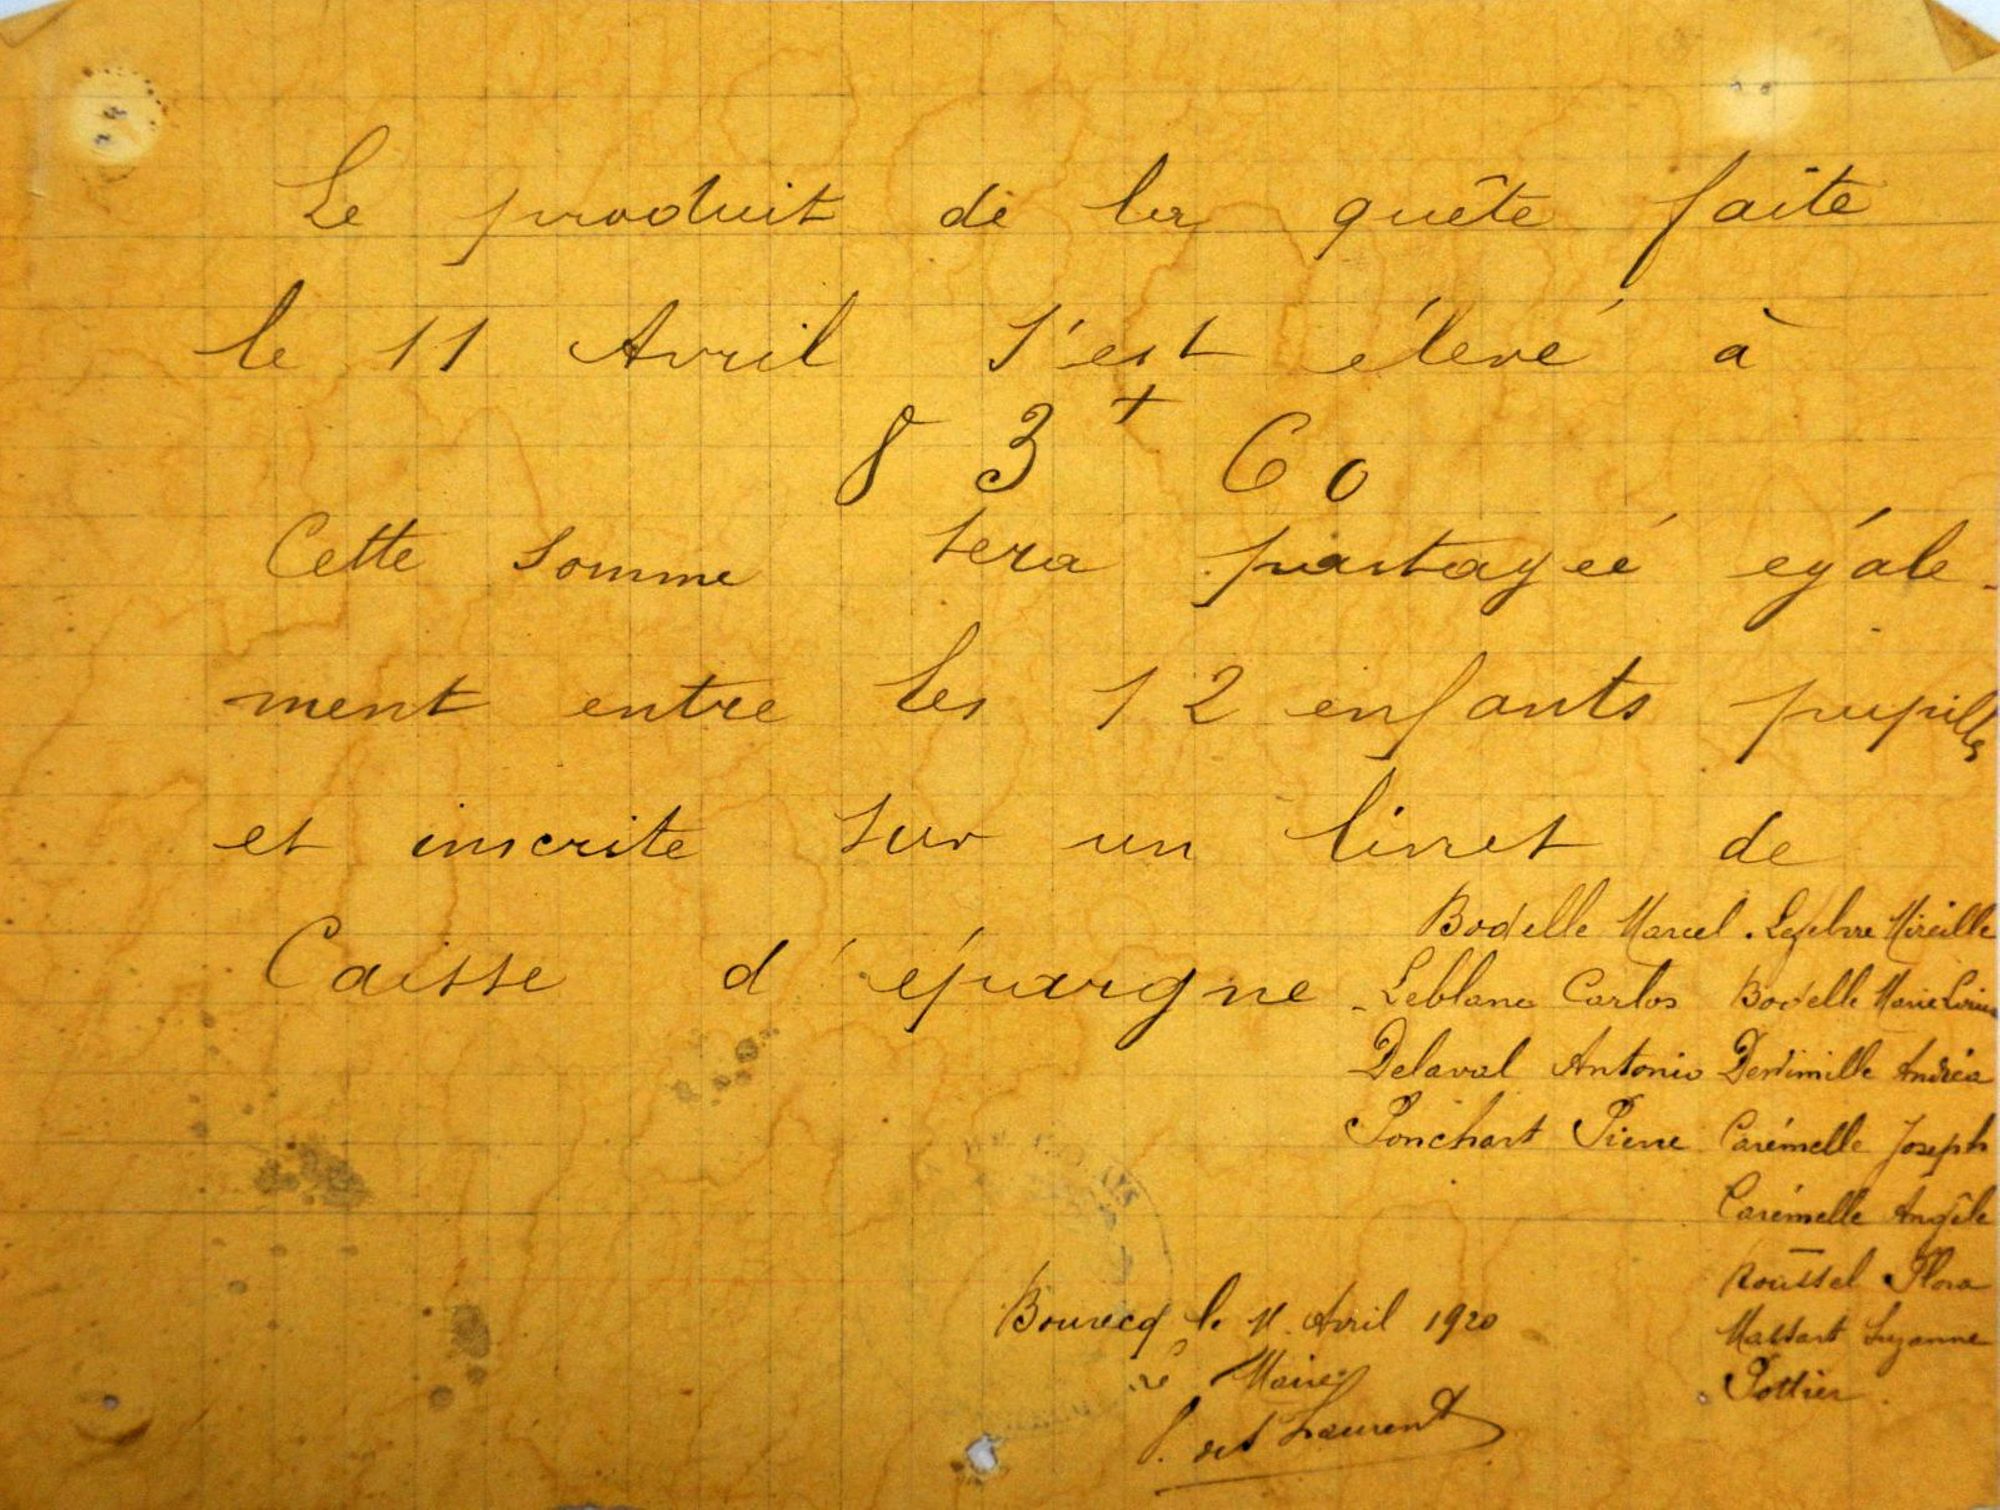 Le produit de la quête faite
le 11 Avril s'est élevé à
83f 60
Cette somme sera partageé egále-
ment entre les 12 enfants pupilles
et inscrite sur un livret de
Caisse d'épargne
Bodelle Marcel. Lefebvre Mireille
Leblanc Carlos Bodelle Marie Louise
Delaval Antonio Andréa
Ponchart Pierre Carémelle Joseph
Carémelle Angèle
Roussel Flora
Massart Suzanne
Pottier
Bourecq le 11 Avril 1920
Le Maire
Laurent